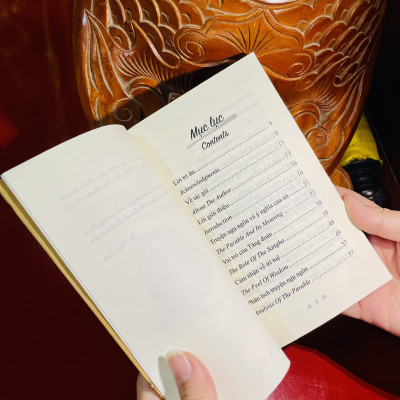 Mục lục
Contents
Lời tri ân 9
Acknowledgments 9
Về tác giả 13
About The Author 13
Lời giới thiệu 16
Introduction
Truyện ngụ ngôn và ý nghĩa của nó
The Parable And Its Meaning
Vai trò của Tăng đoàn
The Role Of The Sangha
Cảm nhận về trí tuệ 49
The Feel of Wisdom 49
Phân tích truyện ngụ ngôn 57
Analysis Of The Parable 57